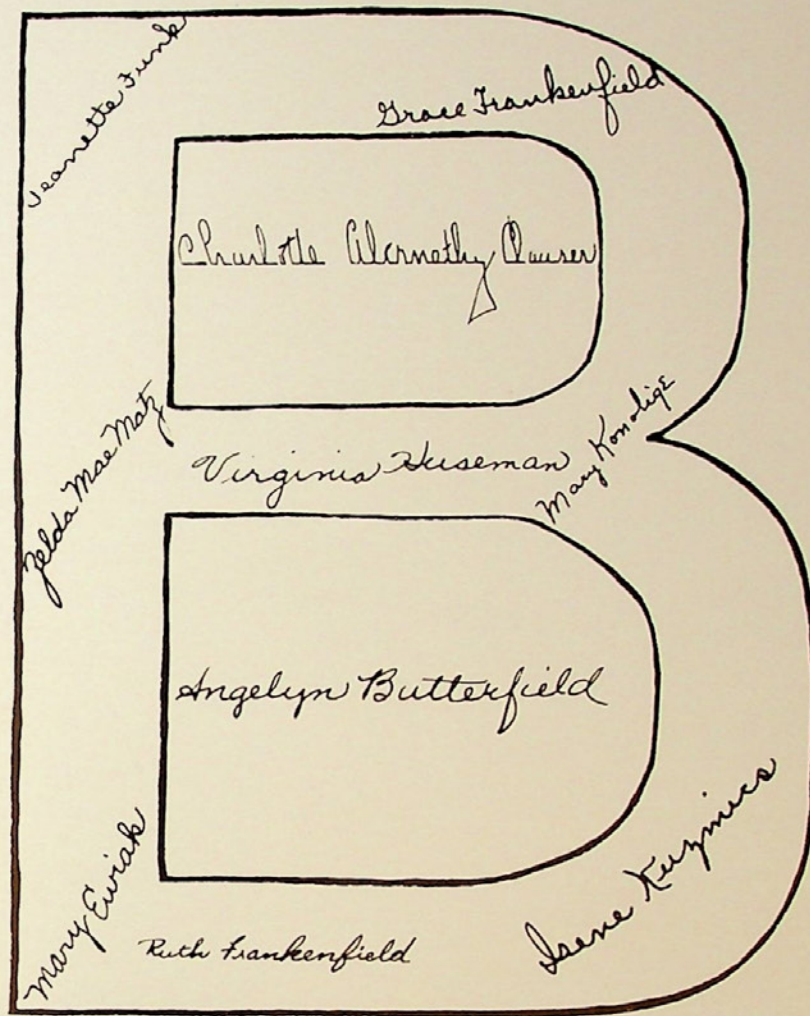 Jeanette Funk
Grace Frankenfield
Charlotte Abernethy Clauser
Zelda Mae Motz
Virginia Huseman
Mary Konolige
Angelyn Butterfield
Mary Ewiak
Ruth Frankenfield
Irene Kuzmics